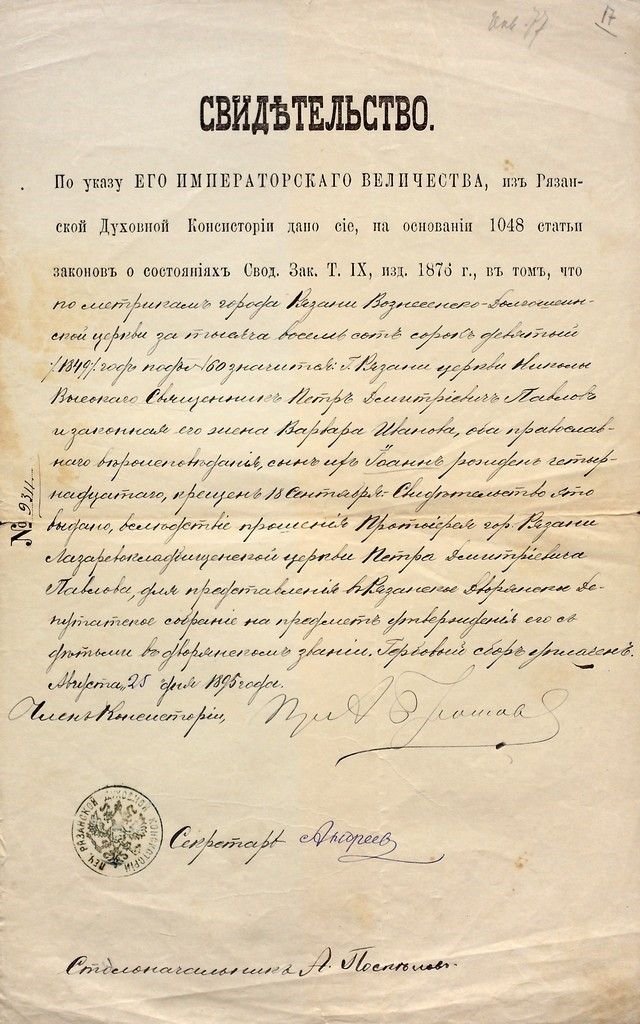 17
СВИДѢТЕЛЬСТВО.
По указу ЕГО ИМПЕРАТОРСКАГО ВЕЛИЧЕСТВА, изъ Рязан-
ской Духовной Консисторіи дано сіе, на основаніи 1048 статьи
законовъ о состояніяхъ Свод. Зак. Т. IX, изд. 1876 г., въ томъ, что
по метрикамъ города Рязани Вознесенско-Долгошеин-
ской церкви за тысяча восемь сотъ сорокъ девятый
/1849/ годъ подъ № 60 значится: Г. Рязани церкви Николы
Высокаго Священникъ Петръ Димитріевичъ Павловъ
и законная его жена Варвара Иванова, оба православ-
наго вѣроисповѣданія, сынъ ихъ Іоаннъ рожденъ четыр-
надцатаго, крещенъ 18 Сентября. Свидѣтельство это
выдано, вслѣдствіе прошенія Протоіерея гор. Рязани
Лазаревокладбищенской церкви Петра Димитріевича
Павлова, для представленія въ Рязанское Дворянское Де-
путатское собраніе на предметъ утвержденія его съ
дѣтьми въ дворянскомъ званіи. Гербовый сборъ уплаченъ.
Августа 25 дня 1895 года.
№ 9311
Членъ Консисторіи,
ПЕЧ. РЯЗАНСКОЙ ДУХОВНОЙ КОНСИСТОРІИ
Секретарь Андреев
Столоначальникъ А. Поспѣловъ.